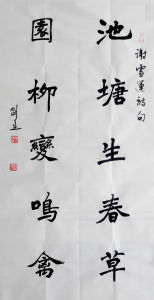 池塘生春草
園柳變鳴禽
謝靈運詩句